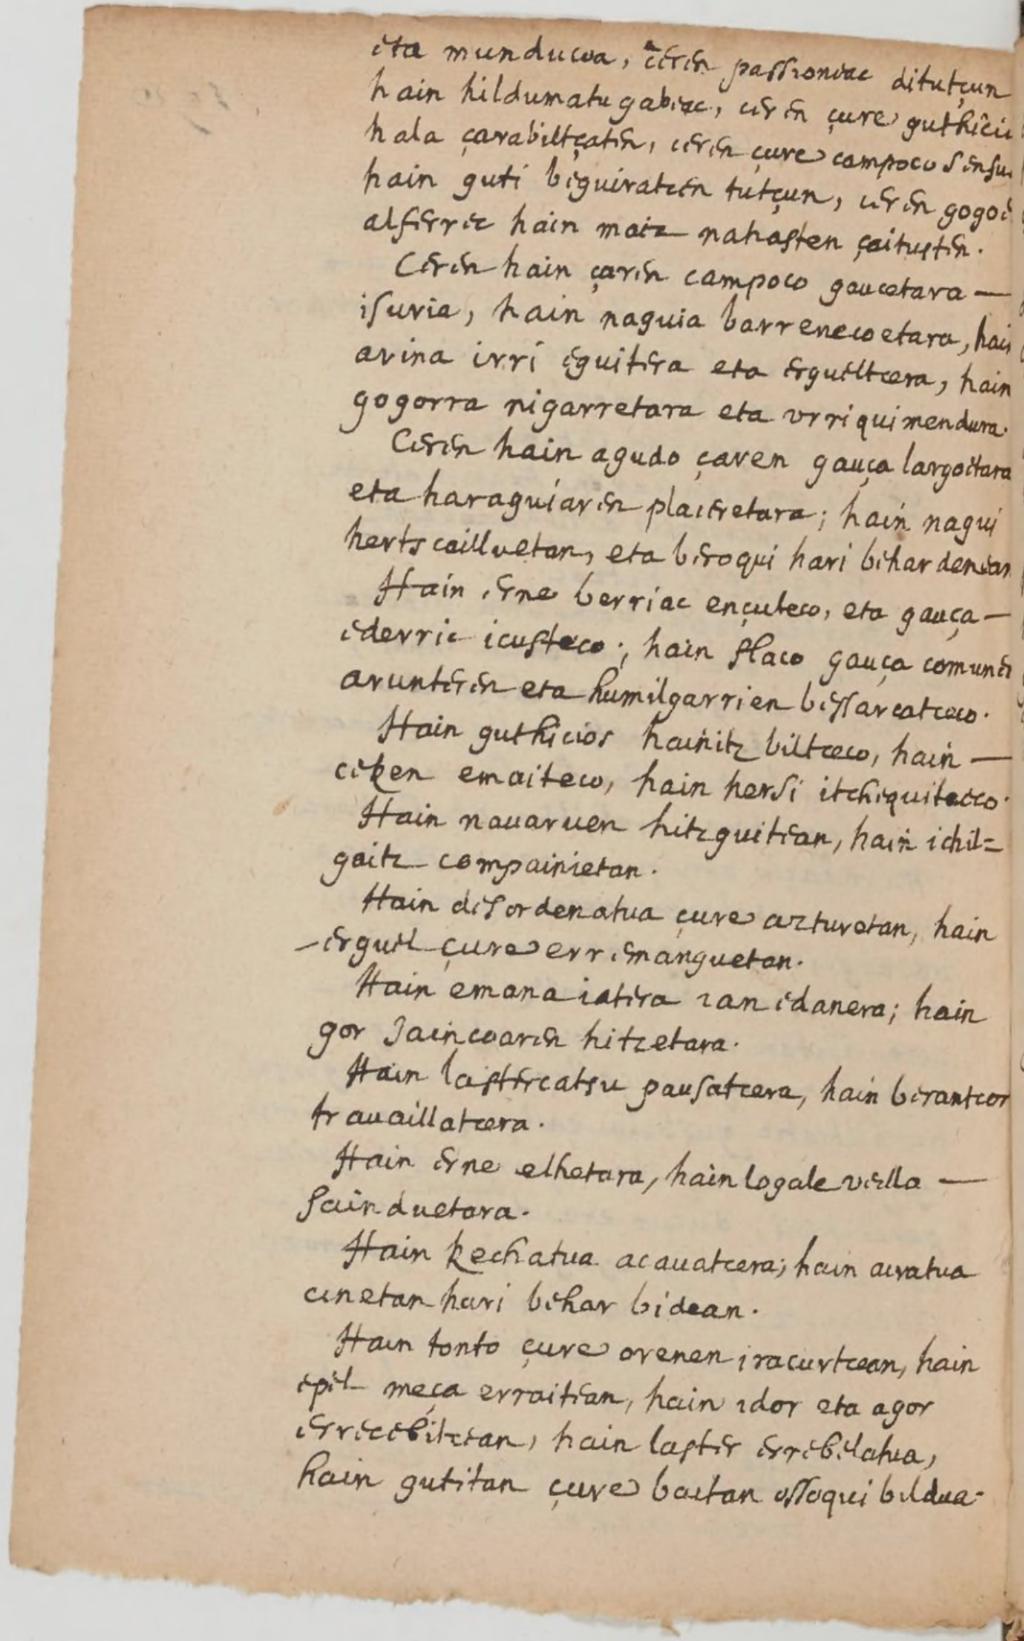 eta munducoa, ceren passioneac ditutçun
hain hildumatu gabeac, ceren çure guthicii
hala çarabiltçaten, ceren çure campoco sensu
hain guti beguiratcen tutçun, ceren gogoe
alferrec hain maiz nahasten çaituzten.
Ceren hain çaren campoco gaucetara —
isuria, hain naguia barrenecoetara, hain
arina irri eguitera eta ergueltcera, hain
gogorra nigarretara eta vrriquimendura.
Ceren hain agudo çaren gauça largoetara
eta haraguiaren placeretara; hain nagui
hertscailluetan, eta beroqui hari behar dencan
Hain erne berriac ençuteco, eta gauça —
ederric icusteco; hain flaco gauça comunen
arunteren eta humilgarrien bessarcatceco.
Hain guthicios hainitz biltceco, hain —
ceken emaiteco, hain hersi itchequiteco.
Hain navaruen hitzguitean, hain ichil=
gaitz compainietan.
Hain desordenatua çure azturetan, hain
—erguel çure erremanguetan.
Hain emana iatera ian edanera; hain
gor Jaincoaren hitzetara.
Hain lastercatsu pausatcera, hain berantcor
travaillatcera.
Hain erne elhetara, hain logale veilla —
sainduetara.
Hain kechatua acauatcera; hain airatua
cinetan hari behar bidean.
Hain tonto çure orenen iracurtcean, hain
epel meça erraitean, hain idor eta agor
errecebitcean, hain laster errebelatua,
hain gutitan çure baitan ossoqui bildua.